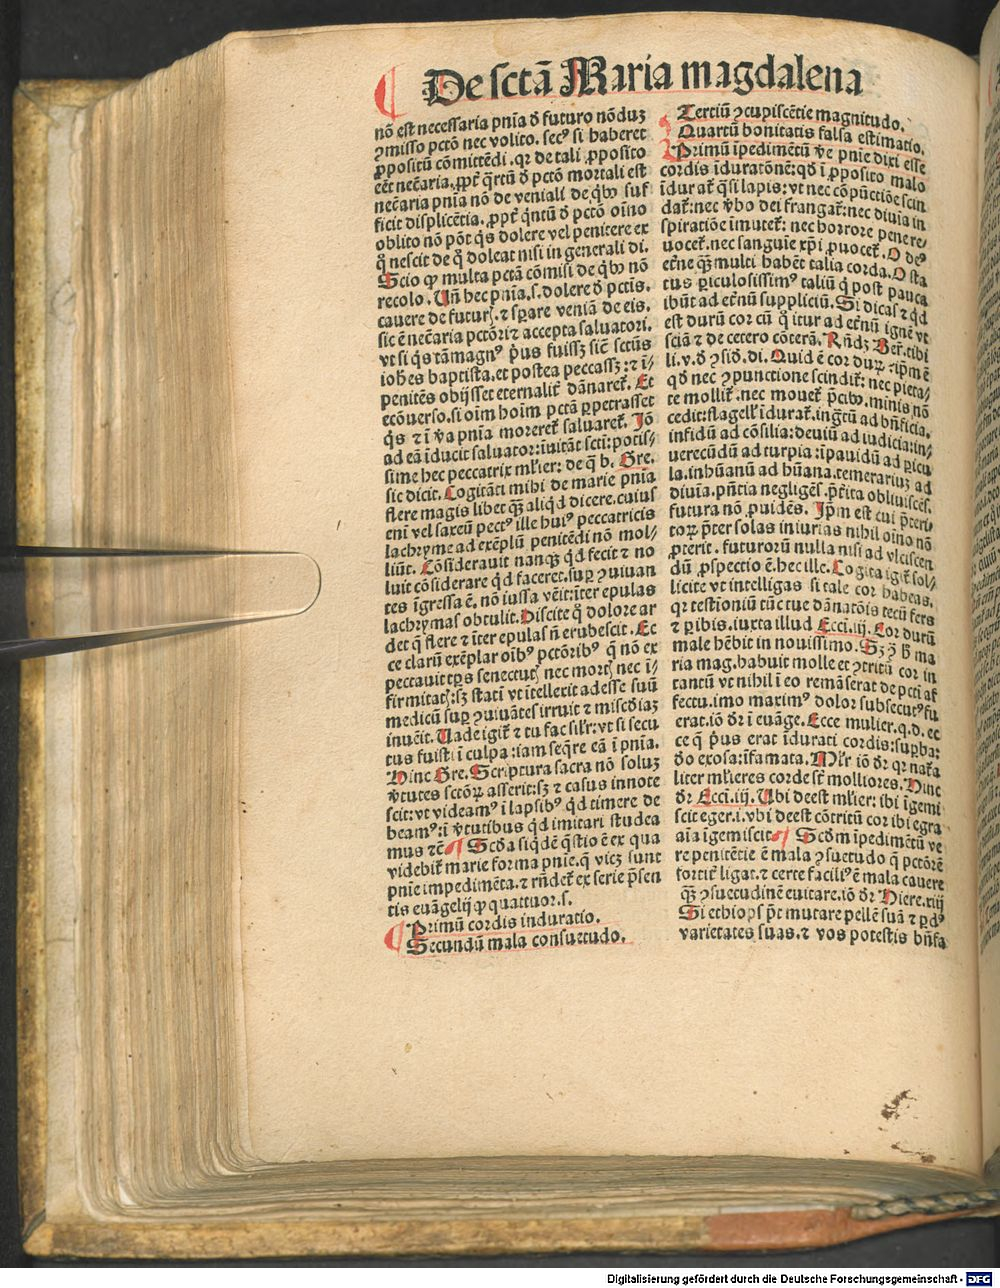 De sctā Maria magdalena
nō est necessaria pnīa ꝺ futuro nōduꝫ
ꝯmisso pctō nec volito. secꝰ si haberet
ꝓpositū cōmittēdi. qꝛ de tali ꝓposito
eēt necāria. ꝓpt̄ q̄rtū ꝺ pctō mortali est
necāria pnīa nō de veniali de qͥbꝰ suf
ficit displicētia. ꝓpt̄ qͥntū ꝺ pctō oīno
oblito nō pōt qͥs dolere vel penitere ex
qͦ nescit de qͦ doleat nisi in generali di.
Scio ꝙ multa pctā cōmisi de qͥbꝰ nō
recolo. Uñ hec pnīa .s. dolere ꝺ pctis.
cauere de futurꝭ. ⁊ sꝑare veniā de eis.
sic ē necāria pctōri ⁊ accepta saluatori.
vt si qͥs tā magnꝰ pͥus fuissꝫ sic̄ sctūs
iohēs baptista. et postea peccassꝫ: ⁊ ī-
penitēs obijsset eternalit̄ dānaret̄. Et
ecōuerso. si oīm hoīm pctā ꝑpetrasset
qͥs ⁊ ī v̄a pnīa moreret̄ saluaret̄. Iō
ad eā īducit saluator: īuitāt scti: potis-
sime hec peccatrix ml̄ier: de q̄ b. Gre.
sic dicit. Cogitāti mihi de marie pnīa
flere magis libet qꝫ̄ aliqͥd dicere. cuius
eni vel saxeū pectꝰ ille huiꝰ peccatricis
lachryme ad exēplū penitēdi nō mol-
liūt. Cōsiderauit nanqꝫ qͥd fecit ⁊ no
luit cōsiderare qͥd faceret. suꝑ ꝯuiuan
tes īgressa ē. nō iussa vēit: īter epulas
lachrymas obtulit. Discite qͦ dolore ar
det q̄ flere ⁊ īter epulas ñ erubescit. Ec
ce clarū exēplar oībꝰ pctōribꝰ q̄ nō ex
pectauit tꝑs senectutꝭ nec mortꝭ nec ī-
firmitatꝭ: sꝫ statī vt ītellexit adesse suū
medicū suꝑ ꝯuiuātes irruit ⁊ miscd̄iaꝫ
inuēit. Uade igit̄ ⁊ tu fac sil̄r: vt si secu
tus fuisti ī culpa: iam seq̄re eā ī pnīa.
Hinc Gre. Scriptura sacra nō soluꝫ
v̄tutes sctōꝝ asserit: sꝫ ⁊ casus innote
scit: vt videamꝰ ī lapsibꝰ qͥd timere de
beamꝰ: ī v̄tutibus qͥd imitari studea
mus ⁊c̄ ¶ Scd̄a siqͥdē q̄stio ē ex qua
videbit̄ marie forma pnīe. q̄ vicꝫ sunt
pnīe impedimēta. ⁊ rn̄det̄ ex serie p̄sen
tis euāgelij ꝙ quattuor .s.
¶ Primū cordis induratio.
Secundū mala consuetudo.
Tertiū ꝯcupiscētie magnitudo.
Quartū bonitatis falsa estimatio.
Primū īpedimētū v̄e pnīe dixi esse
cordis īduratōnē: qd̄ ī ꝓposito malo
īdurat̄ qͣsi lapis: vt nec cōpūctiōe scin
dat̄: nec v̄bo dei frangat̄: nec diuīa in
spiratiōe īmutet̄: nec horrore pene re-
uocet̄. nec sanguīe xp̄i ꝓuocet̄. O deꝰ
et̄ne qꝫ̄ multi habēt talia corda. O sta
tus ꝑiculosissimꝰ taliū qͥ post pauca
ibūt ad et̄nū suppliciū. Si dicas ⁊ qͥd
est durū cor cū qͦ itur ad et̄nū ignē vt
sciā ⁊ de cetero cōterā. Rn̄dꝫ Ber. tibi
li. v. ꝺ ꝯsid̄. di. Quid ē cor duꝝ. ip̄m ē
qd̄ nec ꝯpunctione scindit̄: nec pieta-
te mollit̄. nec mouet̄ p̄cibꝰ. minis nō
cedit: flagellꝭ īdurat̄. īgͣtū ad bn̄ficia.
infidū ad cōsilia: deuiū ad iudicia: in-
uerecūdū ad turpia: īpauidū ad ꝑicu
la. inhūanū ad hūana. temerariuꝫ ad
diuīa. pn̄tia negligēs. p̄t̄ita obliuiscēs.
futura nō ꝓuidēs. Ip̄m est cui p̄teri-
toꝝ p̄ter solas iniurias nihil oīno nō
p̄terit. futuroꝝ nulla nisi ad vlciscen
dū ꝓspectio ē. hec ille. Cogita igit̄ sol-
licite vt intelligas si tale cor habeas.
qꝛ testioniū tūc tue dānatōis tecū fers
⁊ ꝑibis. iuxta illud Ecci. iij. Cor durū
male hēbit in nouissimo. Sꝫ ꝯͣ hͦ ma
ria mag. habuit molle et ꝯtritū cor in
tantū vt nihil ī eo remāserat de pcti af
fectu. imo maximꝰ dolor subsecutꝰ fu
erat. iō dr̄ ī euāge. Ecce mulier. q. d. ec
ce q̄ pͥus erat īdurati cordis: suꝑba:
ꝺo exosa: īfamata. Ml̄r iō dr̄ qꝛ nat̄a
liter ml̄ieres corde st̄ molliores. Hinc
dr̄ Ecci. iij. Ubi deest ml̄ier: ibi īgemi
scit eger. i. vbi deest cōtritū cor ibi egra
aīa īgemiscit ¶ Scd̄m īpedimētū ve
re penitētie ē mala ꝯsuetudo q̄ pctōrē
fortit̄ ligat. ⁊ certe faciliꝰ ē mala cauere
qꝫ̄ ꝯsuetudinē euitare. iō dr̄ Hiere. xiij
Si ethiops pt̄ mutare pellē suā ⁊ ꝑdꝰ
varietates suas. ⁊ vos potestis bn̄fa
Digitalisierung gefördert durch die Deutsche Forschungsgemeinschaft - DFG